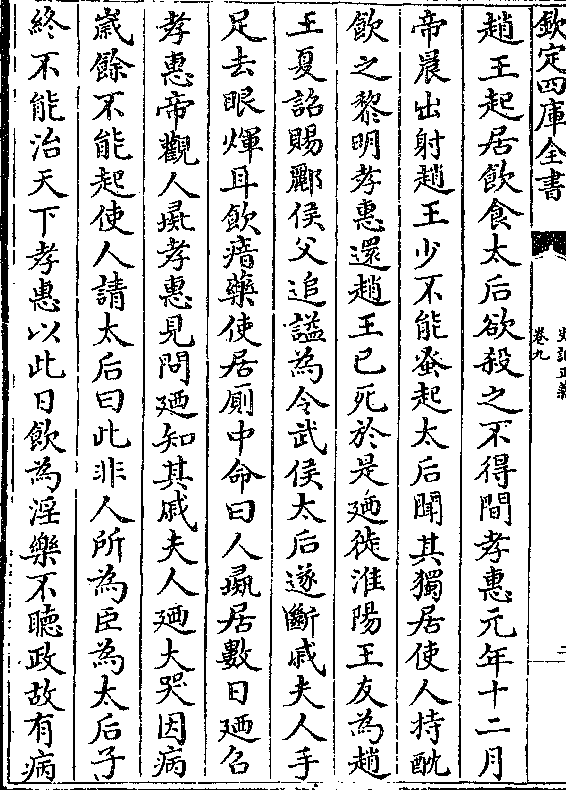 欽定四庫全書
史記正義
卷九
二
趙王起居飲食太后欲殺之不得間孝惠元年十二月
帝晨出射趙王少不能蚤起太后聞其獨居使人持酖
飲之黎明孝惠還趙王已死於是廼徙淮陽王友為趙
王夏詔賜酈侯父追諡為令武侯太后遂斷戚夫人手
足去眼煇耳飲瘖藥使居廁中命曰人彘居數日廼召
孝惠帝觀人彘孝惠見問廼知其戚夫人廼大哭因病
嵗餘不能起使人請太后曰此非人所為臣為太后子
終不能治天下孝惠以此日飲為淫樂不聽政故有病